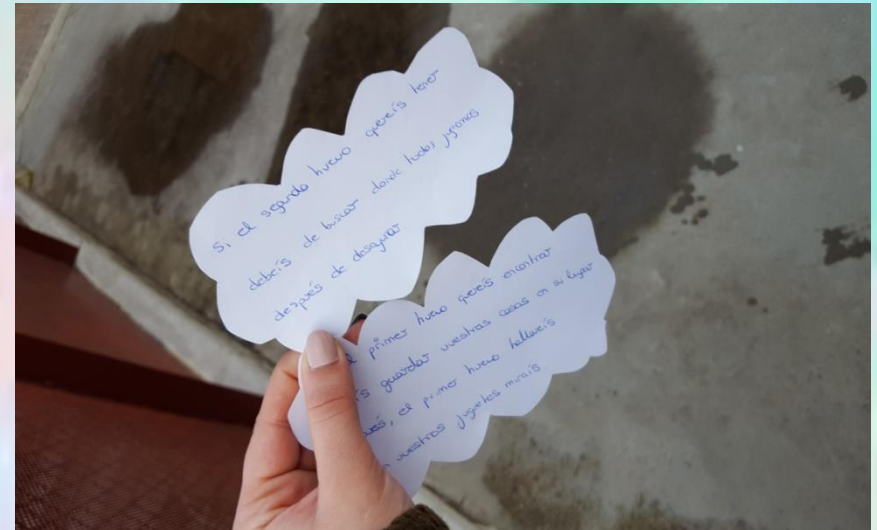 Si el segundo huevo quereis tener
debeis de buscar donde todos jugamos
después de desayunar.
primer huevo quereis encontrar
guardar vuestras cosas en su lugar
, el primer huevo hallareis
vuestros juguetes mirais